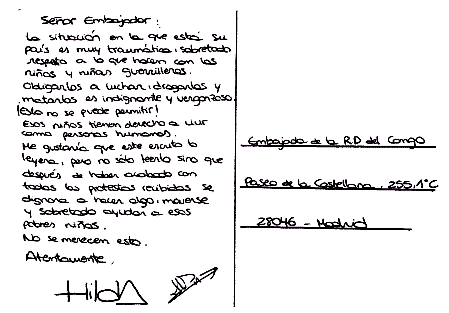 Señor Embajador:
La situación en la que está su
país es muy traumática, sobretodo
respeto a lo que hacen con los
niños y niñas guerrilleros.
Obligarlos a luchar, drogarlos y
matarlos es indignante y vergonzoso.
¡Esto no se puede permitir!
Esos niños tienen derecho a vivir
como personas humanas.
Me gustaría que este escrito lo
leyera, pero no sólo leerlo sino que
después de haber acabado con
todas las protestas recibidas se
dignara a hacer algo, moverse
y sobretodo ayudar a esos
pobres niños.
No se merecen esto.
Atentamente,
Hilda
Embajada de la R.D del Congo
Paseo de la Castellana, 255, 1ºC
28046 - Madrid